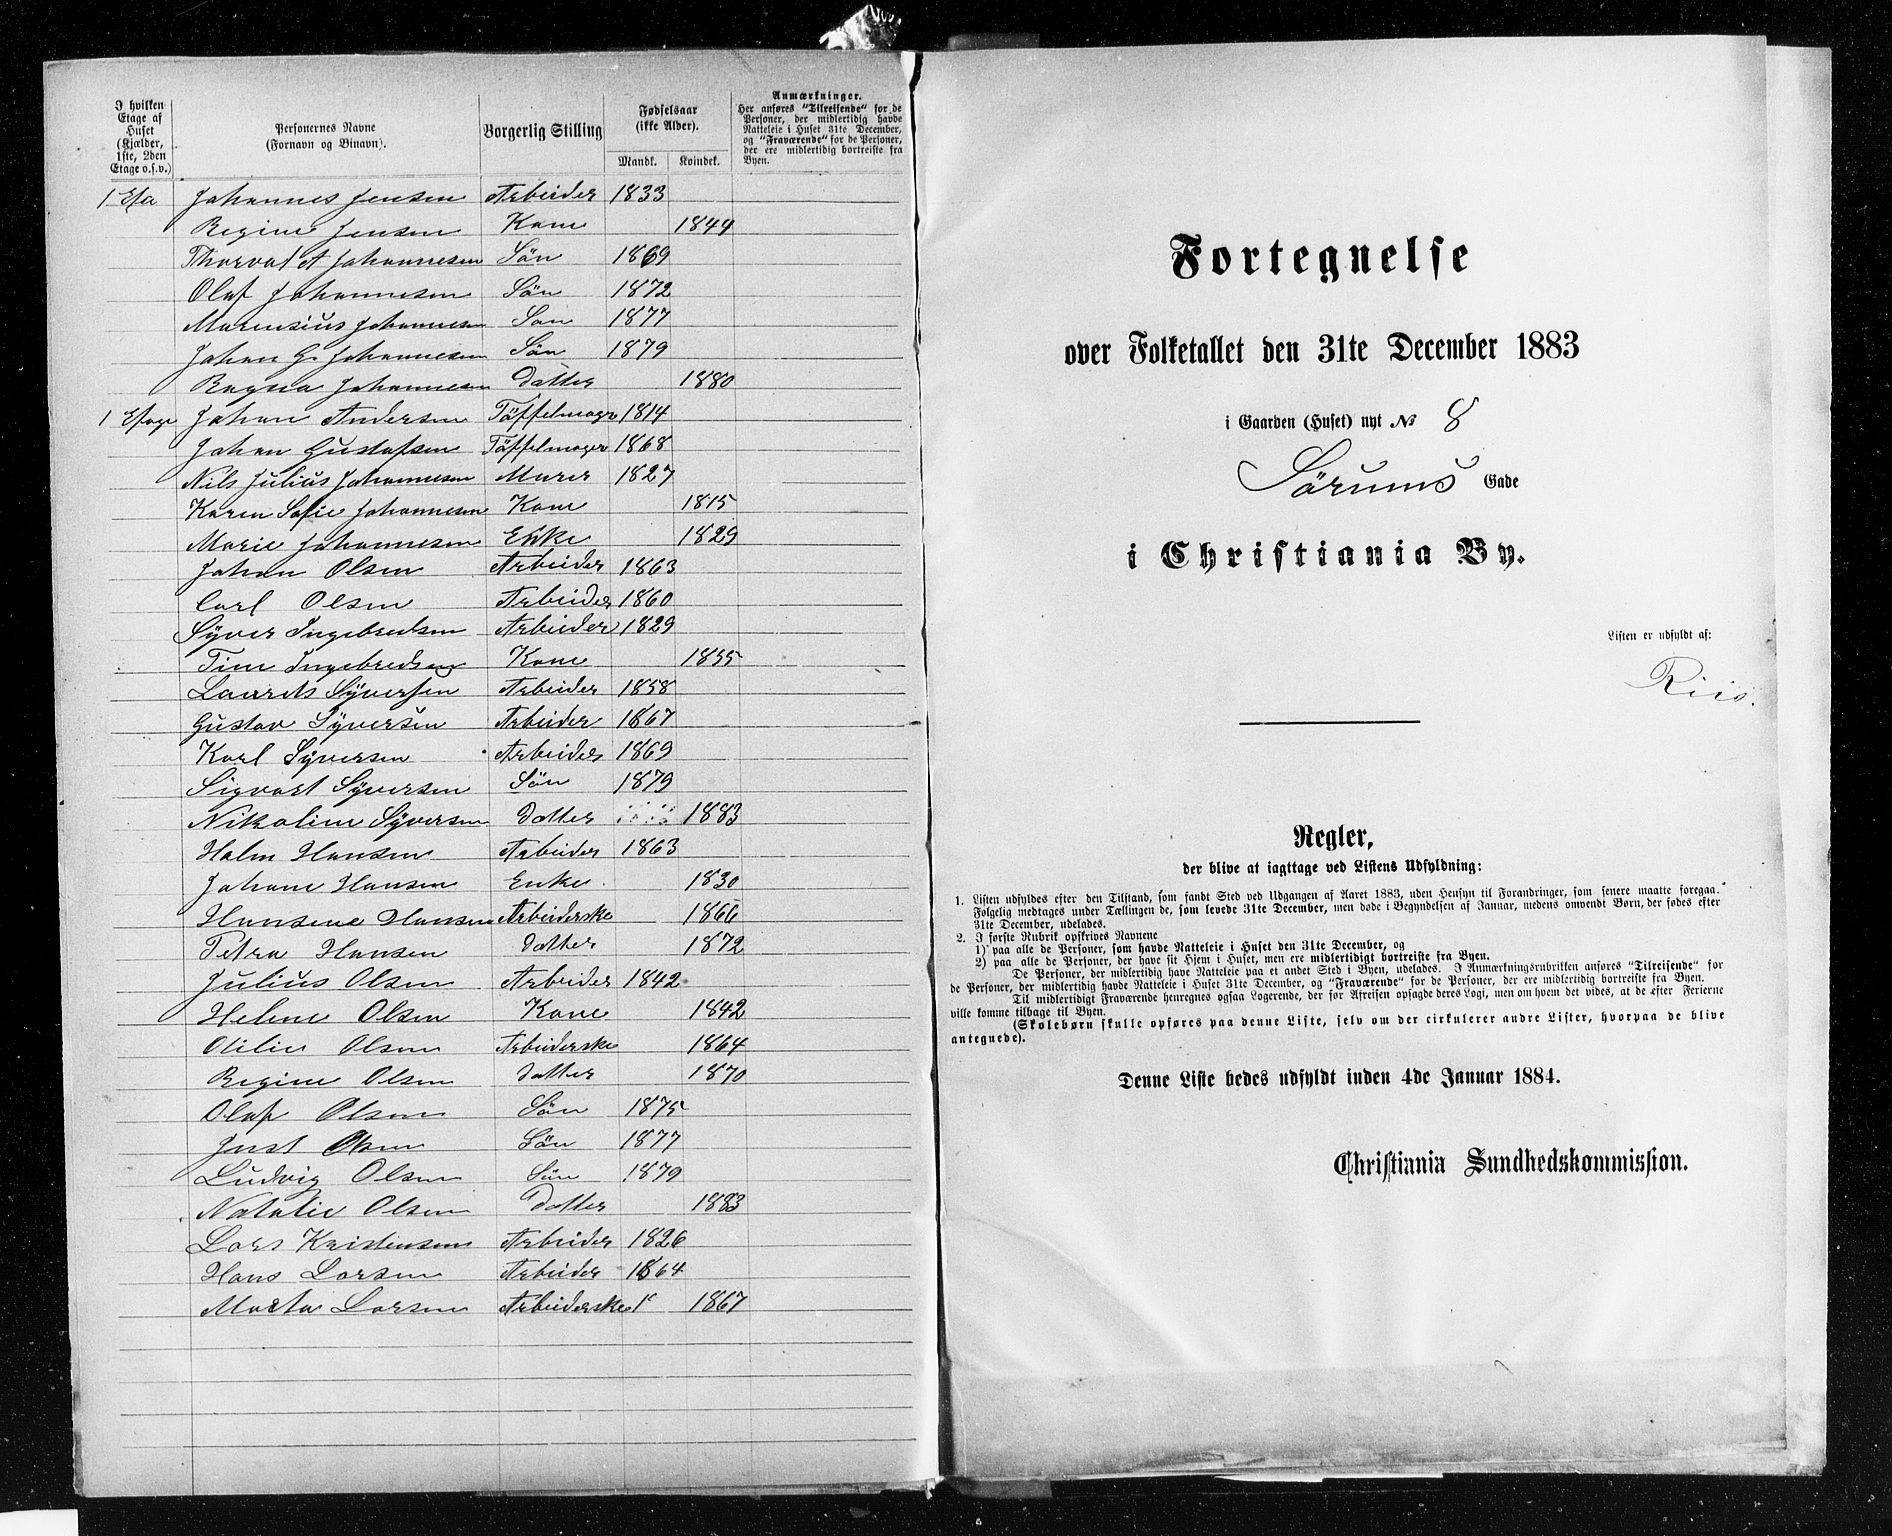 I hvilken
Etage af
Huset
(Kjælder,
1ste, 2den
Etage o.s.v.)
Personernes Navne
(Fornavn og Binavn).
Borgerlig Stilling
Fødselsaar
(ikke Alder).
Mandk. Kvindek.
Anmærkninger.
Her anføres "Tilreisende" for de
Personer, der midlertidig havde
Natteleie i Huset 31te December,
og "Fraværende" for de Personer,
der ere midlertidig bortreiste fra
Byen.
1 Eta Johannes Jensen Arbeider 1833
Regine Jensen Kone 1844
Thorvat A Johannesen Sön 1869
Olaf Johannesen Sön 1872
Marensius Johannesen Son 1877
Johan G. Johannesen Sön 1879
Ragna Johannesen Datter 1880
1 Etage Johan Andersen Töffelmager 1814
Johan Gustafsen Töffelmager 1868
Nils Julius Johannesen Murer 1827
Karen Sofie Johannesen Kone 1815
Marie Johannesen Enke 1829
Johan Olsen Arbeider 1863
Carl Olsen Arbeider 1860
Syver Ingebredsen Arbeider 1829
Tine Ingebredsen Kone 1835
Laurits Syversen Arbeider 1858
Gustav Syversen Arbeider 1867
Karl Syversen Arbeider 1869
Sigvart Syversen Sön 1879
Nikoline Syversen Datter 1883
Halm Hansen Arbeider 1863
Johane Hansen Enke 1830
Hansene Hansen Arbeiderske 1866
Petra Hansen Datter 1872
Julius Olsen Arbeider 1842
Helene Olsen Kone 1842
Otilie Olsen Arbeiderske 1864
Regine Olsen Datter 1870
Olaf Olsen Sön 1875
Just Olsen Sön 1877
Ludvig Olsen Sön 1879
Natalie Olsen Datter 1883
Lars Kristensen Arbeider 1826
Hans Larsen Arbeider 1864
Marta Larsen Arbeiderske 1867
Fortegnelse
over Folketallet den 31te December 1883
i Gaarden (Huset) nyt № 8
Sørums Gade
i Christiania By.
Listen er udfyldt af:
Riis.
Regler,
der blive at iagttage ved Listens Udfyldning:
1. Listen udfyldes efter den Tilstand, som fandt Sted ved Udgangen af Aaret 1883, uden Hensyn til Forandringer, som senere maatte foregaa.
Følgelig medtages under Tællingen de, som levede 31te December, men døde i Begyndelsen af Januar, medens omvendt Børn, der fødes efter
31te December, udelades.
2. I første Rubrik opskrives Navnene
1) paa alle de Personer, som havde Natteleie i Huset den 31te December, og
2) paa alle de Personer, der have sit Hjem i Huset, men ere midlertidigt bortreiste fra Byen.
De Personer, der midlertidig have Natteleie paa et andet Sted i Byen, udelades. I Anmærkningsrubrikken anføres "Tilreisende" for
de Personer, der midlertidig havde Natteleie i Huset 31te December, og "Fraværende" for de Personer, der ere midlertidig bortreiste fra Byen.
Til midlertidigt Fraværende henregnes ogsaa Logerende, der før Afreisen opsagde deres Logi, men om hvem det vides, at de efter Ferierne
ville komme tilbage til Byen.
(Skolebørn skulle opføres paa denne Liste, selv om der cirkulerer andre Lister, hvorpaa de blive
antegnede).
Denne Liste bedes udfyldt inden 4de Januar 1884.
Christiania Sundhedskommission.